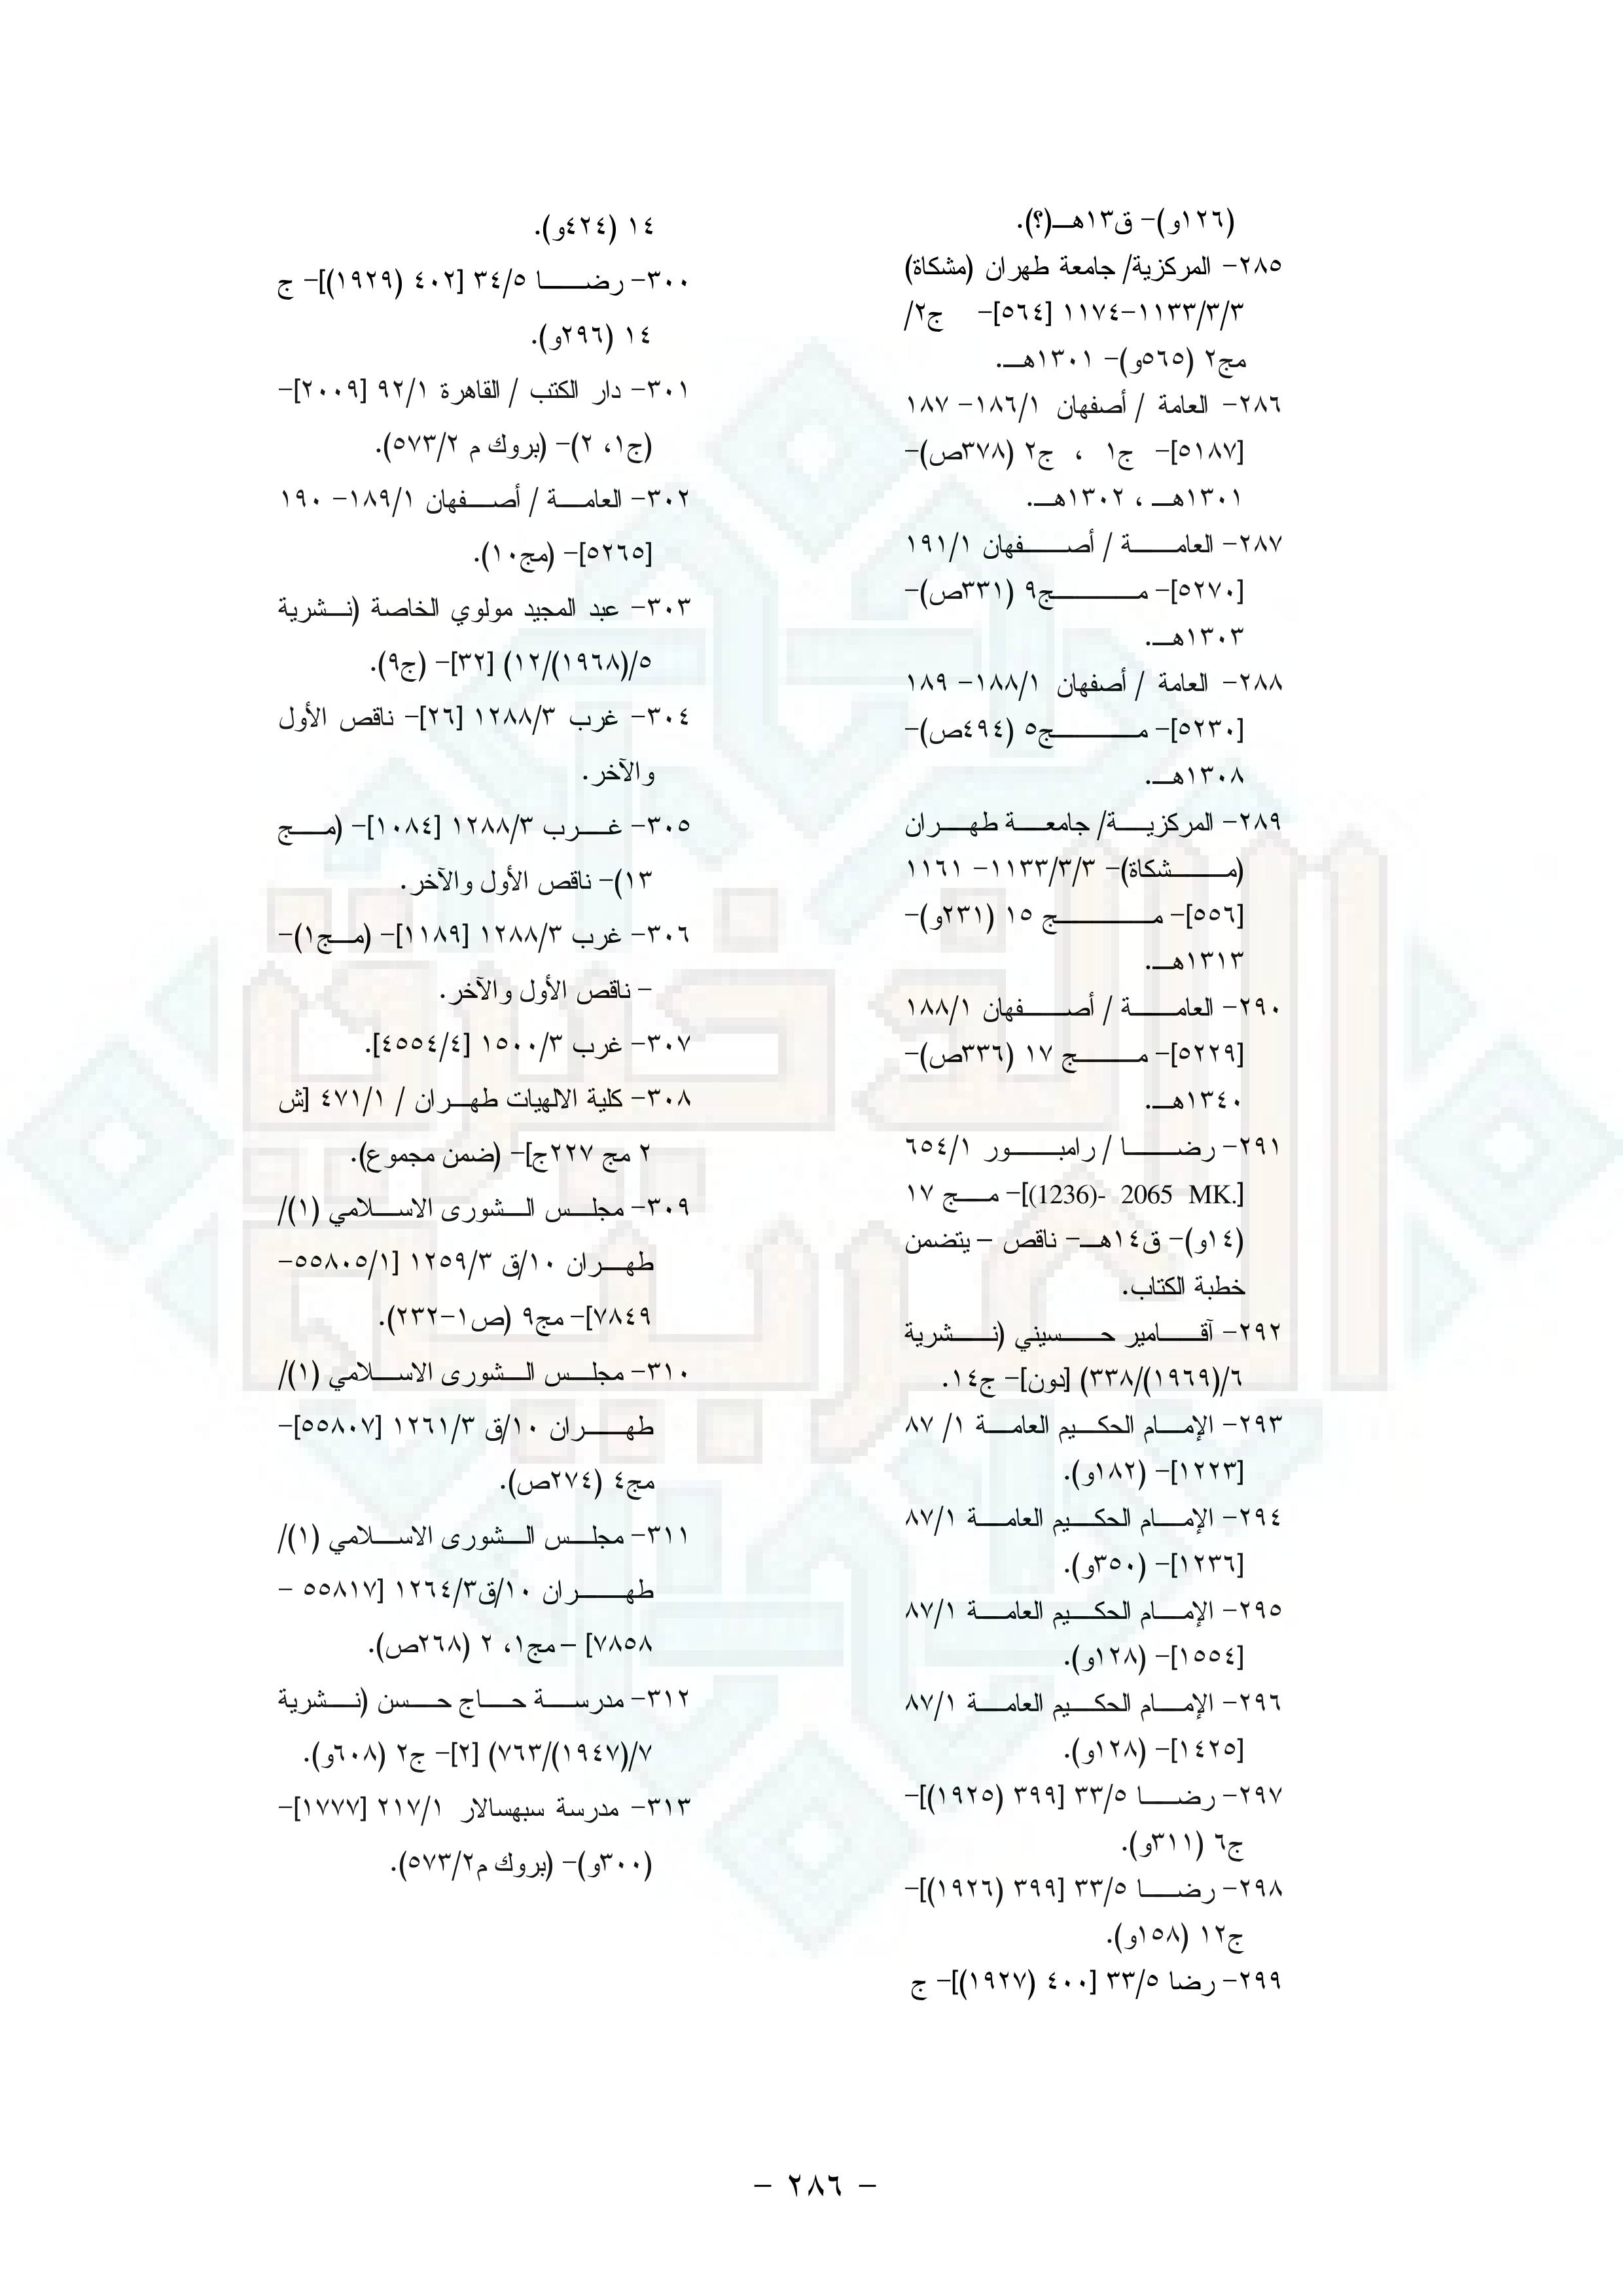 (١٢٦و)- ق١٣هـ(؟).
٢٨٥- المركزية/ جامعة طهران (مشكاة)
١١٣٣/٣/٣-١١٧٤ [٥٦٤]- ج٢/
مج٢ (٥٦٥و)- ١٣٠١هـ.
٢٨٦- العامة / أصفهان ١٨٦/١- ١٨٧
[٥١٨٧]- ج١ ، ج٢ (٣٧٨ص)-
١٣٠١هـ ، ١٣٠٢هـ.
٢٨٧- العامة / أصفهان ١٩١/١
[٥٢٧٠]- مج٩ (٣٣١ص)-
١٣٠٣هـ.
٢٨٨- العامة / أصفهان ١٨٨/١- ١٨٩
[٥٢٣٠]- مج٥ (٤٩٤ص)-
١٣٠٨هـ.
٢٨٩- المركزية/ جامعة طهران
(مشكاة)- ١١٣٣/٣/٣- ١١٦١
[٥٥٦]- مج ١٥ (٢٣١و)-
١٣١٣هـ.
٢٩٠- العامة / أصفهان ١٨٨/١
[٥٢٢٩]- مج ١٧ (٣٣٦ص)-
١٣٤٠هـ.
٢٩١- رضا / رامبور ٦٥٤/١
[.2065 MK -(1236)]- مج ١٧
(١٤و)- ق١٤هـ- ناقص – يتضمن
خطبة الكتاب.
٢٩٢- آقامير حسيني (نشرية
٦/(١٩٦٩)/٣٣٨) [دون]- ج١٤.
٢٩٣- الإمام الحكيم العامة ١/ ٨٧
[١٢٢٣]- (١٨٢و).
٢٩٤- الإمام الحكيم العامة ٨٧/١
[١٢٣٦]- (٣٥٠و).
٢٩٥- الإمام الحكيم العامة ٨٧/١
[١٥٥٤]- (١٢٨و).
٢٩٦- الإمام الحكيم العامة ٨٧/١
[١٤٢٥]- (١٢٨و).
٢٩٧- رضا ٣٣/٥ [٣٩٩ (١٩٢٥)]-
ج٦ (٣١١و).
٢٩٨- رضا ٣٣/٥ [٣٩٩ (١٩٢٦)]-
ج١٢ (١٥٨و).
٢٩٩- رضا ٣٣/٥ [٤٠٠ (١٩٢٧)]- ج
١٤ (٤٢٤و).
٣٠٠- رضا ٣٤/٥ [٤٠٢ (١٩٢٩)]- ج
١٤ (٢٩٦و).
٣٠١- دار الكتب / القاهرة ٩٢/١ [٢٠٠٩]-
(ج١، ٢)- (بروك م ٥٧٣/٢).
٣٠٢- العامة / أصفهان ١٨٩/١- ١٩٠
[٥٢٦٥]- (مج١٠).
٣٠٣- عبد المجيد مولوي الخاصة (نشرية
٥/(١٩٦٨)/١٢) [٣٢]- (ج٩).
٣٠٤- غرب ١٢٨٨/٣ [٢٦]- ناقص الأول
والآخر.
٣٠٥- غرب ١٢٨٨/٣ [١٠٨٤]- (مج
١٣)- ناقص الأول والآخر.
٣٠٦- غرب ١٢٨٨/٣ [١١٨٩]- (مج١)-
- ناقص الأول والآخر.
٣٠٧- غرب ١٥٠٠/٣ [٤٥٥٤/٤].
٣٠٨- كلية الالهيات طهران / ٤٧١/١ [ش
٢ مج ٢٢٧ج]- (ضمن مجموع).
٣٠٩- مجلس الشورى الاسلامي (١)/
طهران ١٠/ق ١٢٥٩/٣ [٥٥٨٠٥/١-
٧٨٤٩]- مج٩ (ص١-٢٣٢).
٣١٠- مجلس الشورى الاسلامي (١)/
طهران ١٠/ق ١٢٦١/٣ [٥٥٨٠٧]-
مج٤ (٢٧٤ص).
٣١١- مجلس الشورى الاسلامي (١)/
طهران ١٠/ق١٢٦٤/٣ [٥٥٨١٧ -
٧٨٥٨] – مج١، ٢ (٢٦٨ص).
٣١٢- مدرسة حاج حسن (نشرية
٧/(١٩٤٧)/٧٦٣) [٢]- ج٢ (٦٠٨و).
٣١٣- مدرسة سبهسالار ٢١٧/١ [١٧٧٧]-
(٣٠٠و)- (بروك م٥٧٣/٢).
- ٢٨٦ -